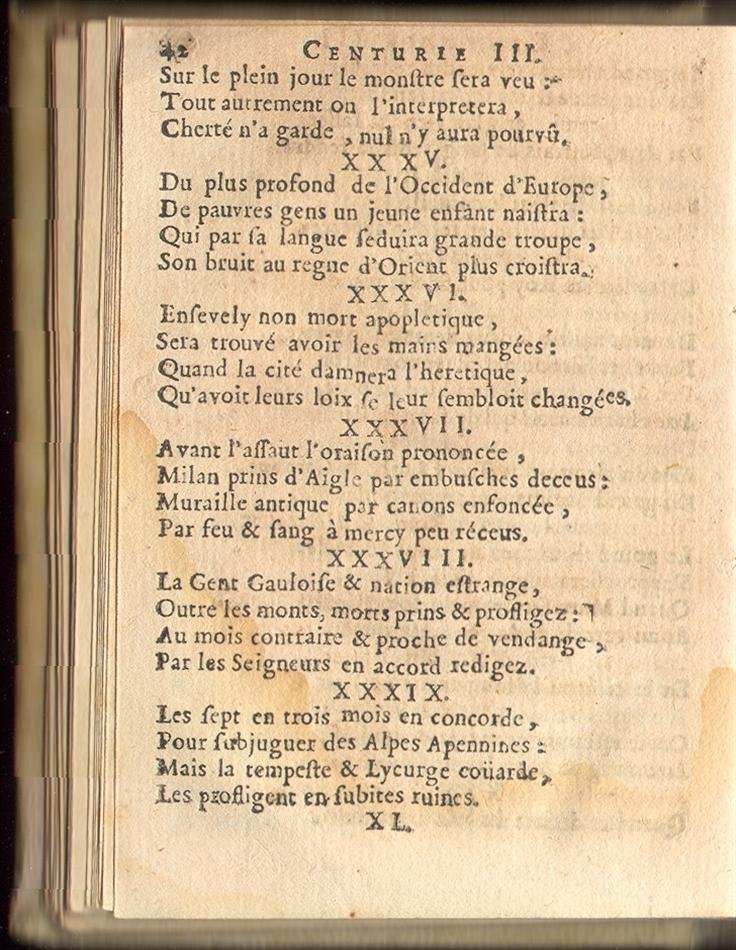 42 CENTURIE III.
Sur le plein jour le monſtre ſera veu :
Tout autrement on l'interpretera ,
Cherté n'a garde , nul n'y aura pourvû.
XXXV.
Du plus profond de l'Occident d'Europe ,
De pauvres gens un jeune enfant naiſtra :
Qui par ſa langue ſeduira grande troupe ,
Son bruit au regne d'Orient plus croiſtra.
XXXVI.
Enſevely non mort apopletique ,
Sera trouvé avoir les mains mangées :
Quand la cité damnera l'heretique ,
Qu'avoit leurs loix ſe leur ſembloit changées.
XXXVII.
Avant l'aſſaut l'oraiſon prononcée ,
Milan prins d'Aigle par embuſches deceus :
Muraille antique par canons enfoncée ,
Par feu & ſang à mercy peu réceus.
XXXVIII.
La Gent Gauloiſe & nation eſtrange,
Outre les monts, morts prins & profligez :
Au mois contraire & proche de vendange ,
Par les Seigneurs en accord redigez.
XXXIX.
Les ſept en trois mois en concorde ,
Pour ſubjuguer des Alpes Apennines :
Mais la tempeſte & Lycurge coüarde ,
Les profligent en ſubites ruines.
XL.